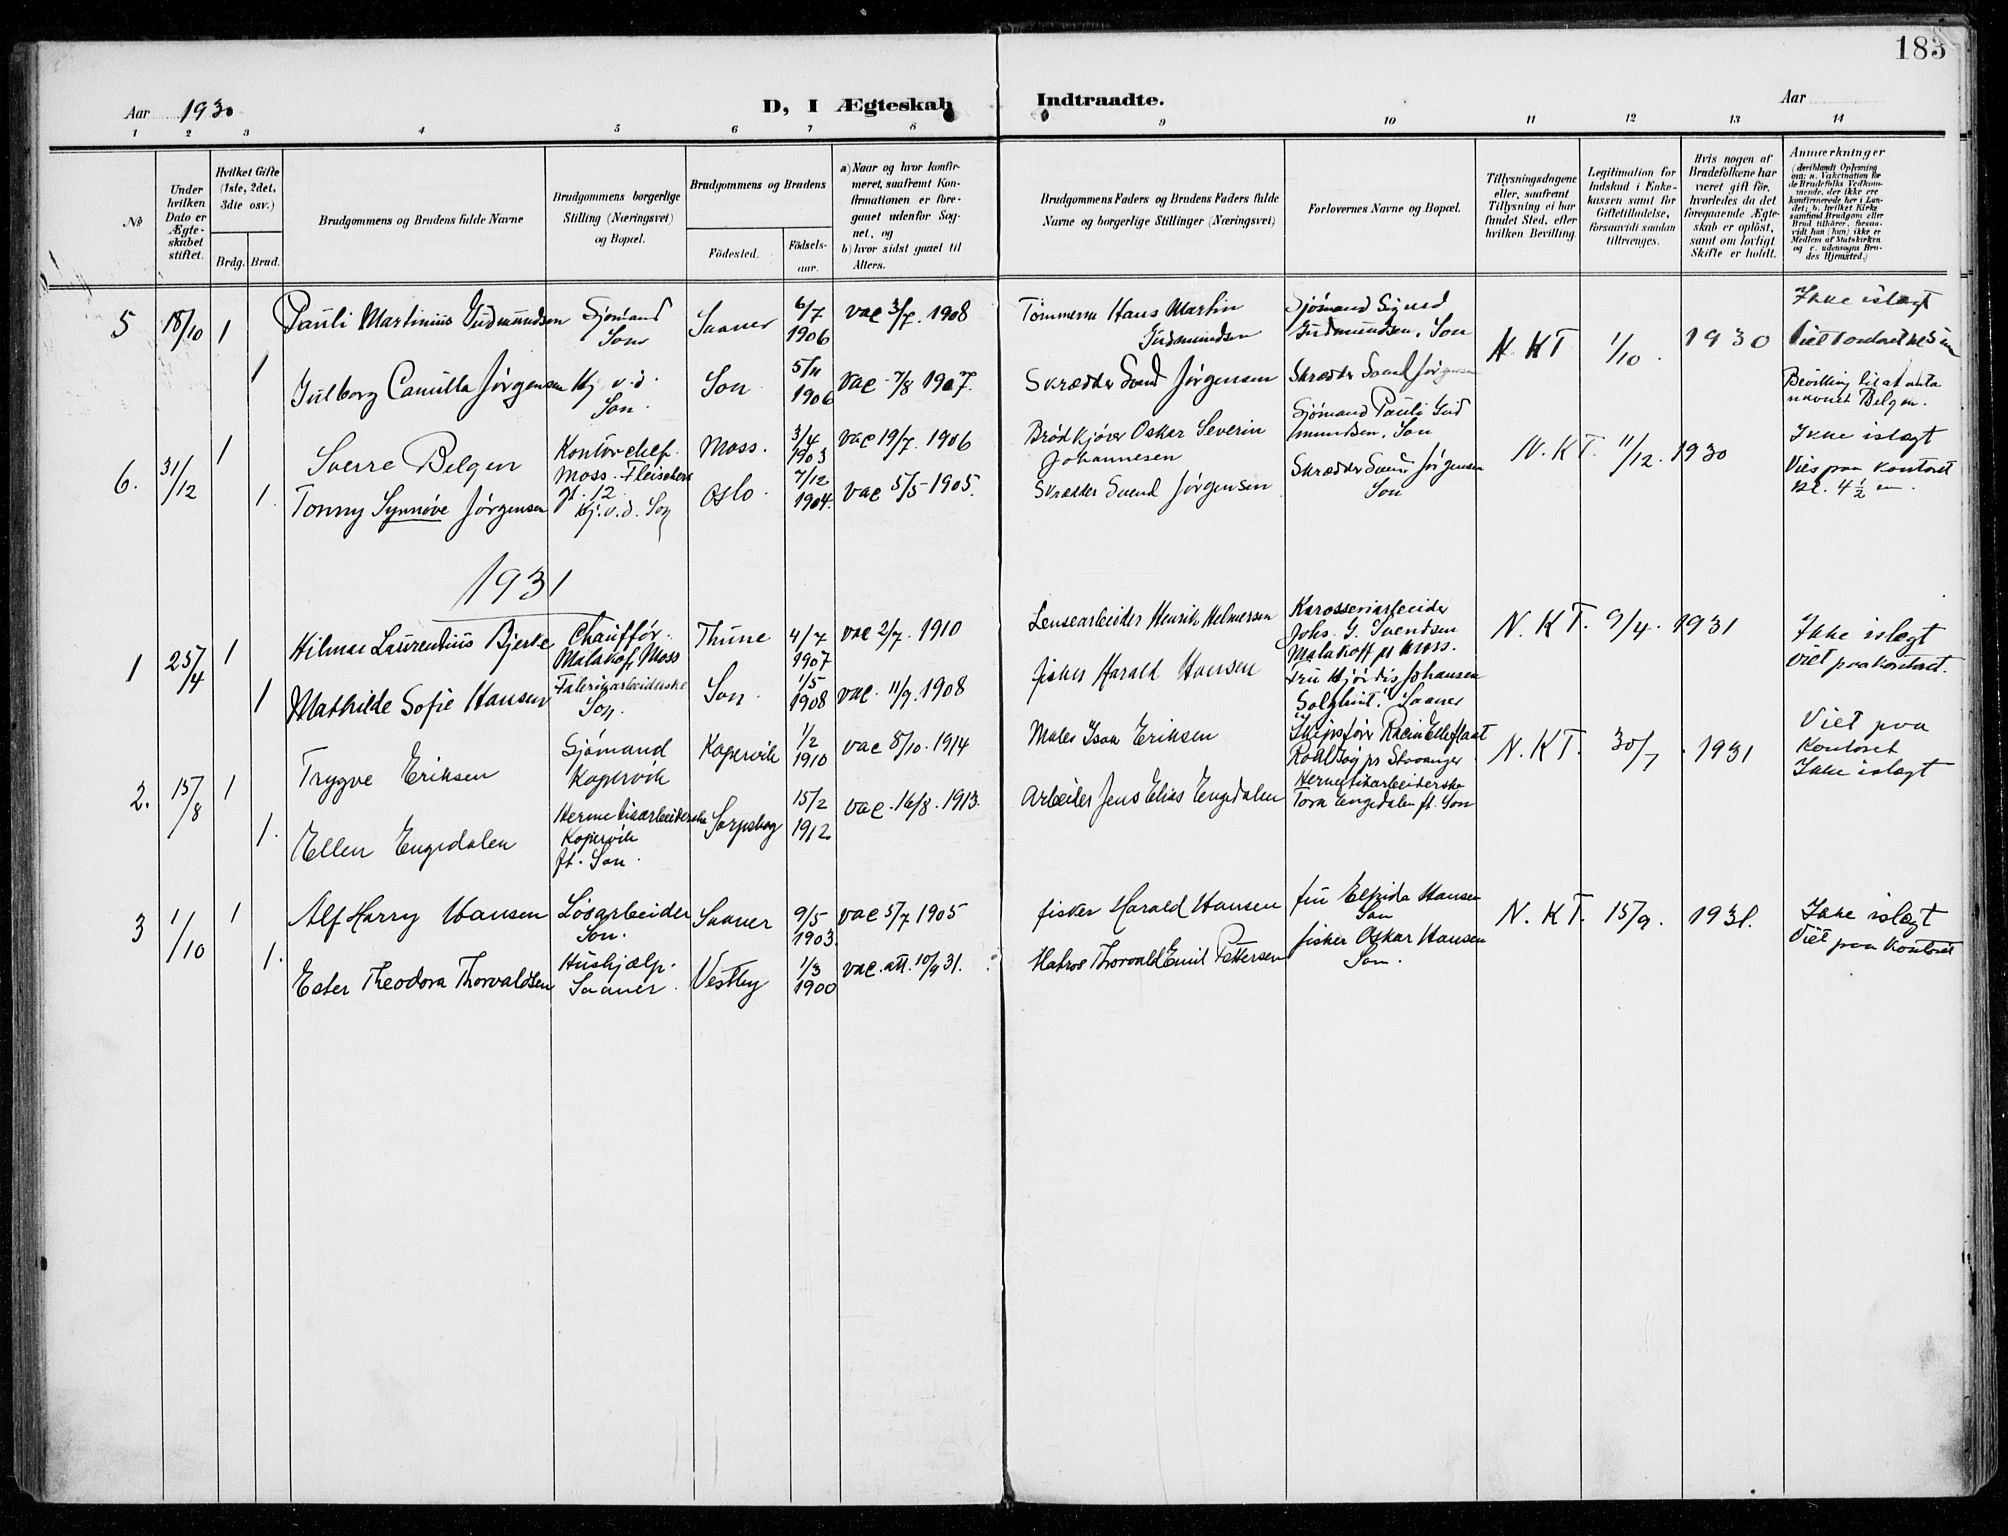 183
Aar 1930
D, I Ægteskab Indtraadte.
Aar
1 2 3 4 5 6 7 8 9 10 11 12 13 14
№
Under hvilken Dato er Ægteskabet stiftet.
Hvilket Gifte (1ste, 2det, 3die osv.)
Brdg. Brud.
Brudgommens og Brudens fulde Navne
Brudgommens borgerlige Stilling (Næringsvei) og Bopæl.
Brudgommens og Brudens
Fødested.
Fødselsaar.
a) Naar og hvor konfirmeret, saafremt Konfirmationen er foregaaet udenfor Sognet, og
b) hvor sidst gaaet til Alters.
Brudgommens Faders og Brudens Faders fulde Navne og borgerlige Stillinger (Næringsvei)
Forlovernes Navne og Bopæl.
Tillysningsdagene eller, saafremt Tillysning ei har fundet Sted, efter hvilken Bevilling.
Legitimation for Indskud i Enkekassen samt for Giftetilladelse, forsaavidt saadan tiltrænges.
Hvis nogen af Brudefolkene har været gift før, hvorledes da det foregaaende Ægteskab er opløst, samt om lovligt Skifte er holdt.
Anmærkninger
(deriblandt Oplysning om: a. Vakcination for de Brudefolks Vedkommende, der ikke ere konfirmerede her i Landet; b. hvilket Kirkesamfund Brudgom eller Brud tilhører, forsaavidt han (hun) ikke er Medlem af Statskirken og c. udensogns Brudes Hjemsted.)
5 18/10 1 Pauli Martinius Gudmundsen Sjømand Son Saaner 6/7 1906 vac 3/7. 1908 Tømmerm Hans Martin Gudmundsen Sjømand Sigurd Gudmundsen, Son N. KT 1/10. 1930 Ikke islægt
1 Gulborg Camilla Jørgensen Hj. v. d. Son. Son 5/11 1906 vac. 7/8 1907. Skrædder Svend Jørgensen Skrædder Svend Jørgensen
6. 31/12 1 Sverre Belgen Kontorchef Moss. Fleischers gt. 12 Moss. 3/4 1903 vac 19/7. 1906 Brødkjører Oskar Severin Johannesen Sjømand Pauli Gudmundsen, Son N. KT. 11/12. 1930 Bevilling til at anta navnet Belgen.
Ikke islægt
Vies paa kontoret kl. 4 ½ em.
1. Tonny Synnøve Jørgensen Hj. v. d. Son Oslo. 7/12 1904. vac 5/5 1905. Skrædder Svend Jørgensen Skrædder Svend Jørgensen Son
1931
1 25/4 1 Hilmar Laurentius Bjerke Chauffør. Malakof, Moss Thune 4/7 1907 vac 2/7. 1910 Lensearbeider Henrik Helmersen Karosseriarbeider Johs. G. Svendsen Malakoff pr Moss. N. KT. 9/4. 1931 Ikke islægt
Viet paa kontoret.
1 Mathilde Sofie Hansen Fabrigarbeiderske Son. Son. 1/5 1908 vac. 11/9. 1908 fisker Harald Hansen Fru Hjørdis Johansen Solglint. Saaner
2. 15/8 1 Trygve Eriksen Sjømand Kopervik Kopervik 1/2 1910 vac 8/10. 1914 Maler Isak Eriksen Skipsfører N. KT. 30/7. 1931 Viet paa Kontoret
Ikke islægt
1. Ellen Engedalen Hermetikarbeiderske Kopervik ft. Son. Sarpsborg 15/2 1912 vac. 16/8. 1913. Arbeider Jens Elias Engedalen Hermetikarbeiderske Tora Engedalen ft. Son
3 1/10 1 Alf Harry Hansen Løsarbeider Son. Saaner 9/5 1903. vac 5/7 1905 fisker Harald Hansen fru Elfrida Hansen Son N. KT. 15/9. 1931. Ikke islægt
Viet paa kontoret
1. Ester Theodora Thorvaldsen Hushjælp. Saaner. Vestby 1/3 1900 vac. att. 10/9 31. Matros Thorvald Emil Pettersen fisker Oskar Hansen Son.